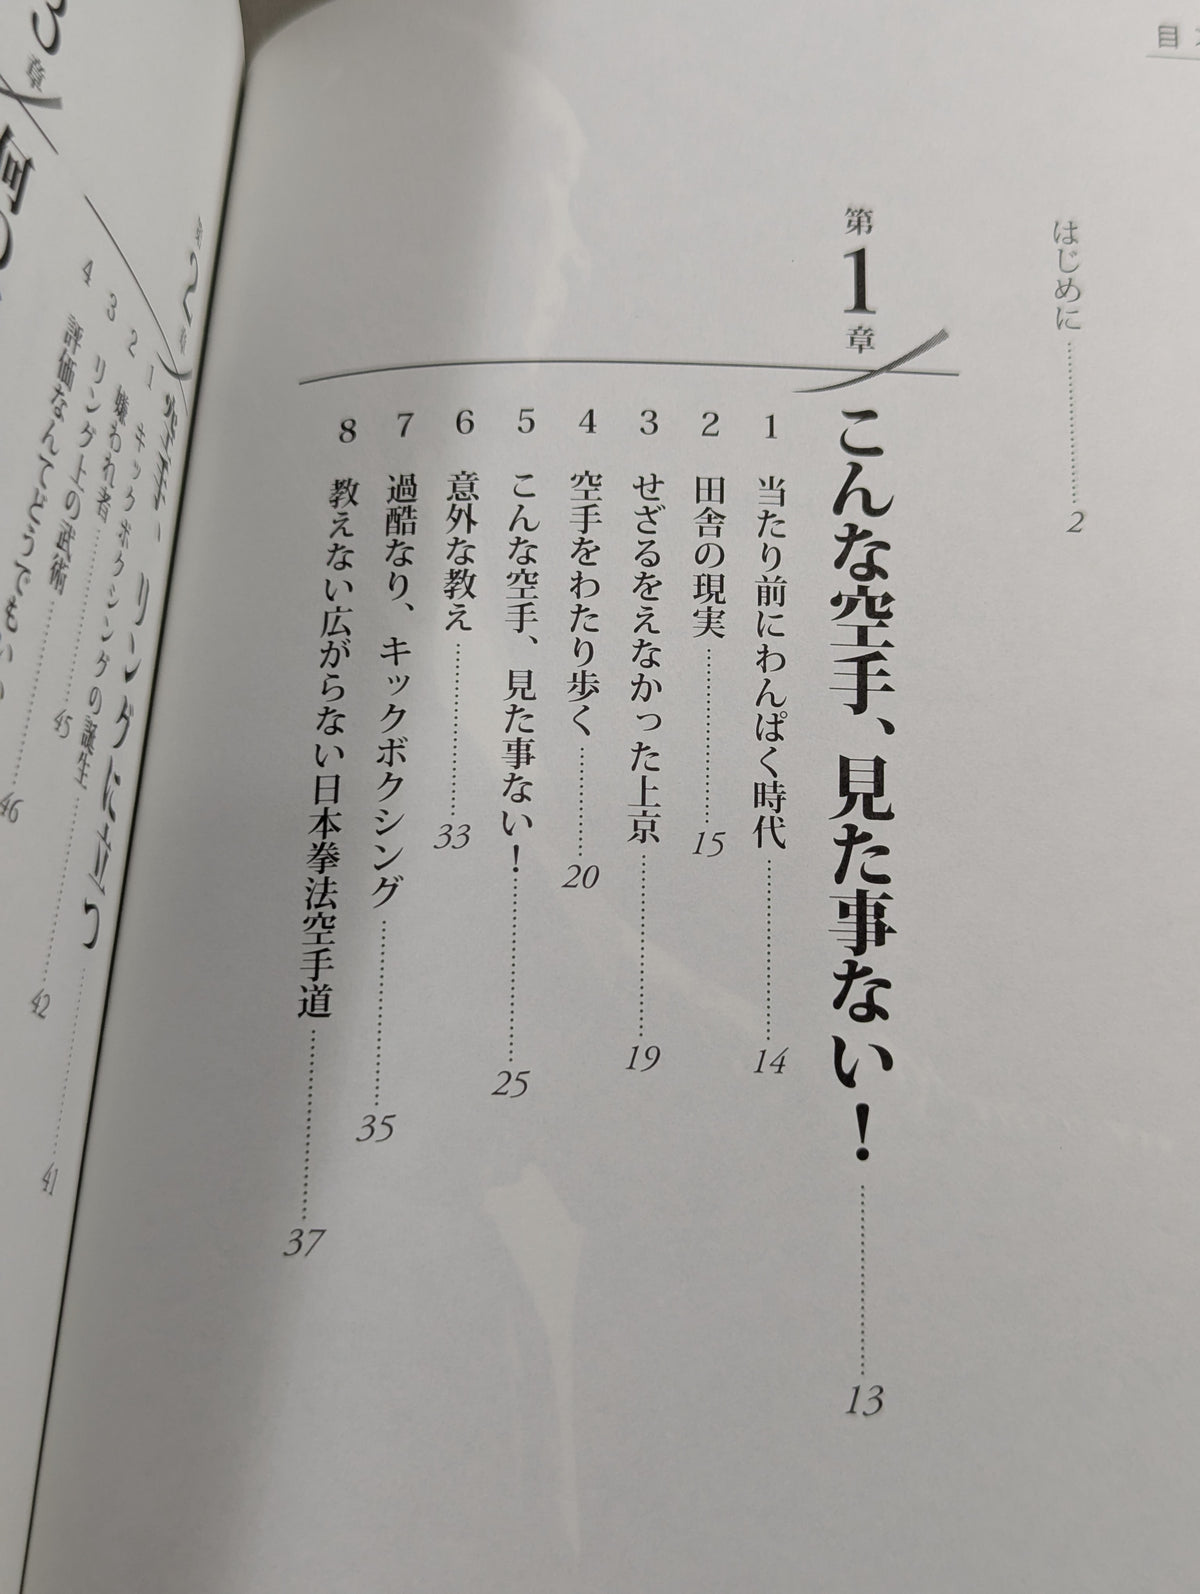 目
はじめに 2
第1章 こんな空手、見た事ない！ 13
1 当たり前にわんぱく時代 14
2 田舎の現実 15
3 せざるをえなかった上京 19
4 空手をわたり歩く 20
5 こんな空手、見た事ない！ 25
6 意外な教え 33
7 過酷なり、キックボクシング 35
8 教えない広がらない日本拳法空手道 37
第2章 空手、リングに立つ 41
1 キックボクシングの誕生 42
2 嫌われ者 45
3 リング上の武術 46
4 評価なんてどうでもいい
章 何の